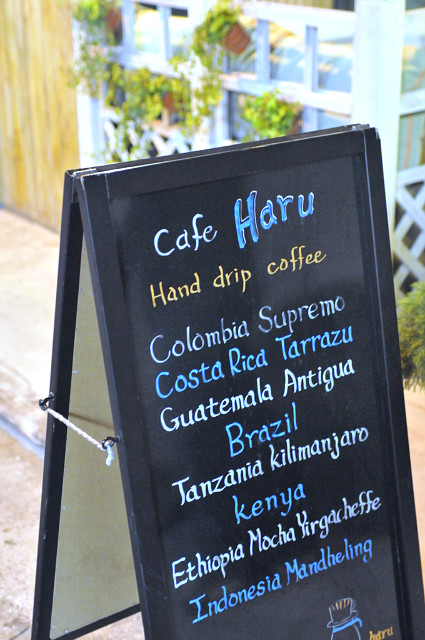 Cafe Haru
Hand drip coffee
Colombia Supremo
Costa Rica Tarrazu
Guatemala Antigua
Brazil
Tanzania kilimanjaro
kenya
Ethiopia Mocha Yirgacheffe
Indonesia Mandheling
haru